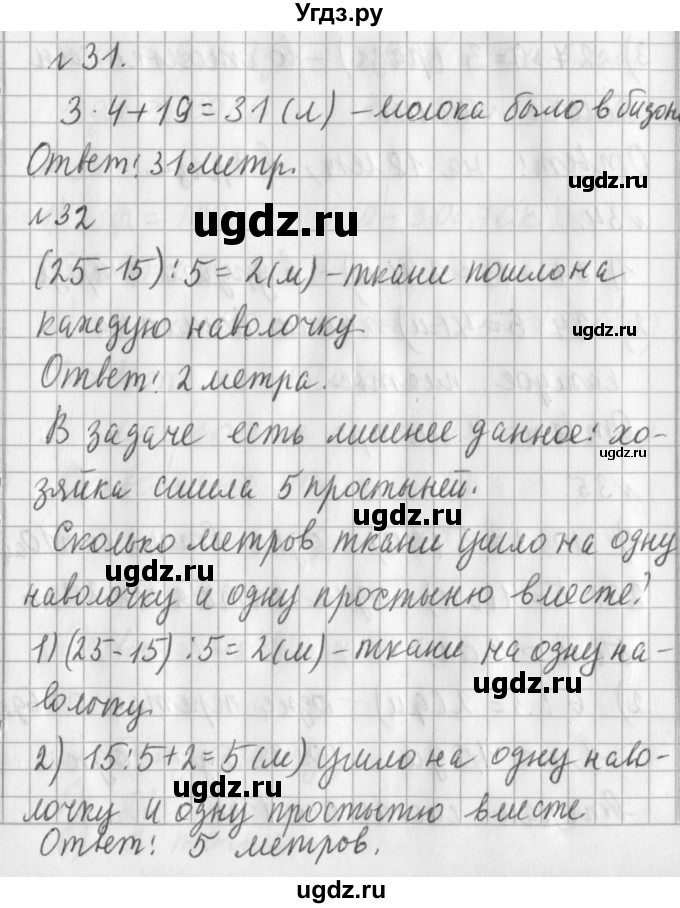 Угдз.ру
№31.
3·4+19=31(л) – молока было в бидоне
Ответ: 31 литр.
ugdz.ru
№32
ugdz.ru
(25-15):5=2(м) – ткани пошло на
каждую наволочку.
ugdz.ru
Ответ: 2 метра.
В задаче есть лишнее данное: хо-
ugdz.ru
зяйка сшила 5 простыней.
ugdz.ru
Сколько метров ткани ушло на одну
ugdz.ru
наволочку и одну простыню вместе?
1) (25-15):5=2(м) – ткани на одну на-
ugdz.ru
волочку.
2) 15:5+2=5(м) ушло на одну наво-
ugdz.ru
лочку и одну простытю вместе
Ответ: 5 метров.
ugdz.ru